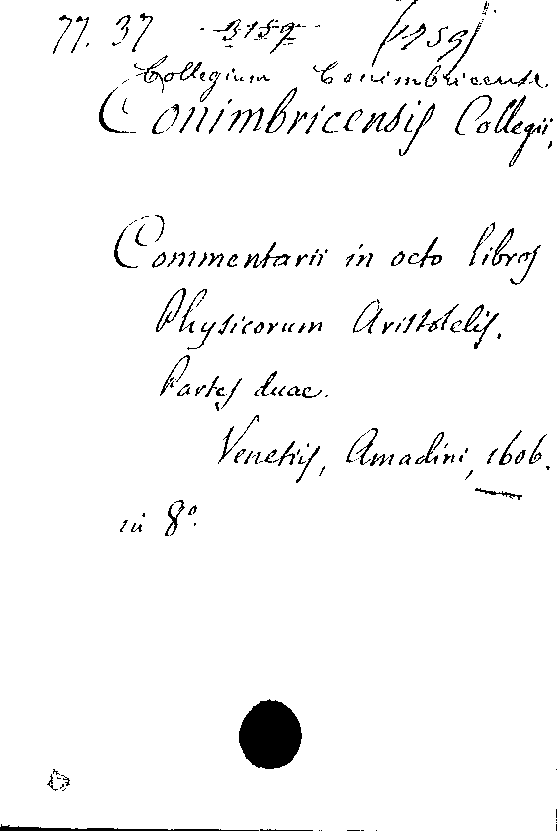 77. 37 3159 (1959)
Collegium Conimbricense
Conimbricensis Collegii,
Commentarii in octo libros
Physicorum Aristotelis.
Partes duae.
Venetiis, Amadini, 1606.
in 8º.